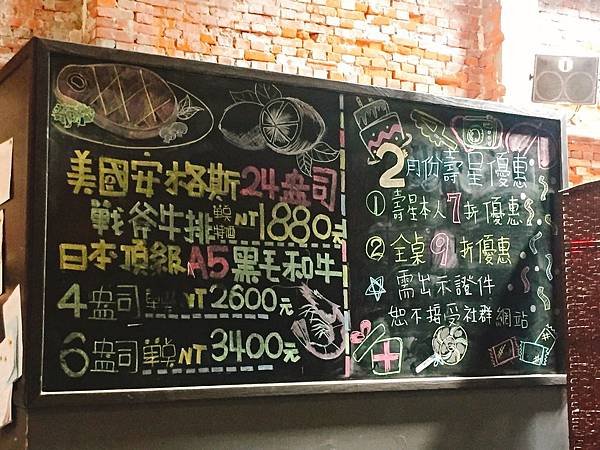 美國安格斯24盎司
戰斧牛排單點特價NT1880元
日本頂級A5黑毛和牛
4盎司單點NT2600元
6盎司單點NT3400元
2月份壽星優惠
①壽星本人7折優惠
②全桌9折優惠
☆需出示證件
恕不接受社群網站